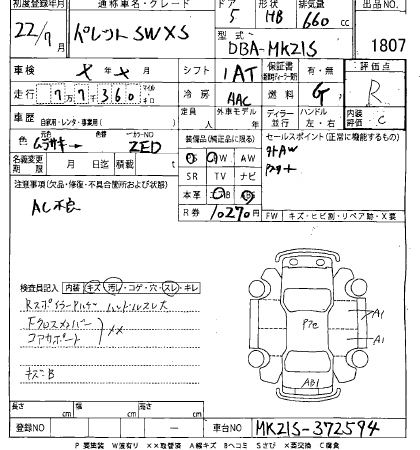 初度登録年月 通称車名・グレード ドア 形状 排気量 出品NO
22/9 パレット SW XS 5 HB 660 cc
型式 DBA-MK21S 1807
車検 × 年 × 月 シフト IAT 保証書 有・無 評価点
走行 77360 マイル キロ 冷房 AAC 燃料 G R
定員 人 外車モデル ディーラー 並行 ハンドル 左・右 内装評価 C
車歴 自家用・レンタ・事業用( )
色 元色 ムラサキ→ 色替 カラーNO ZED
装備(純正品に限る) セールスポイント(正常に機能するもの)
名義変更期限 月 日迄 積載 t
PS PW AW
SR TV ナビ
本革 エアB
R券 10270円
注意事項(欠品・修復・不具合箇所および状態)
AC不良
FW キズ・ヒビ割・リペア跡・X要
検査員記入 内装 キズ・汚れ・コゲ・穴・スレ・キレ
ハンドルスレ大
Fクロスメンバー
コアサポート ××
キズ・B
P7c
A1
A1
AB1
長さ cm 幅 cm 高さ cm
登録NO ー 車台NO MK21S-372594
P 要塗装 W波有り ××取替済 A線キズ Bヘコミ Sさび X要交換 C腐食